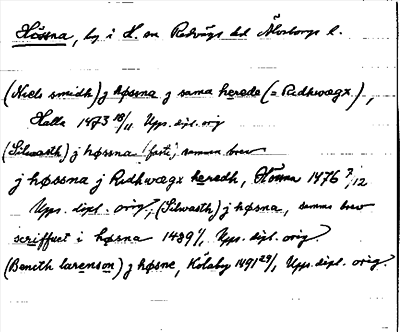 Hössna, by i H. sn Redvägs hd Älvsborgs l.
(Niels smidh) j høsna j sama herede (= Redhwægx),
Halla 1473 18/11 Upps. dipl. orig
(Silwasth) j høssna (faste), samma brev
j høssna j Redhwægx heredh, Hössna 1476 7/12
Upps. dipl. orig, (Silwasth) j høsna, samma brev
scriffuet i høsna 1489 Upps. dipl. orig.
(Bencth larenson) j høsne, Kölaby 1491 29/ Upps. dipl. orig.